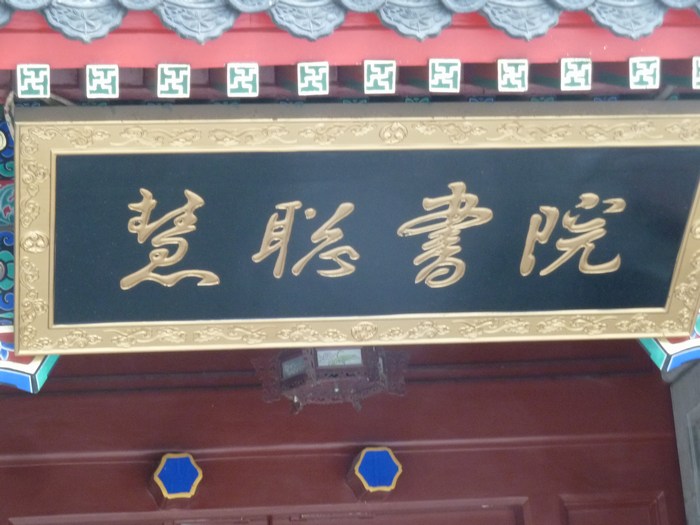 慧聪書院